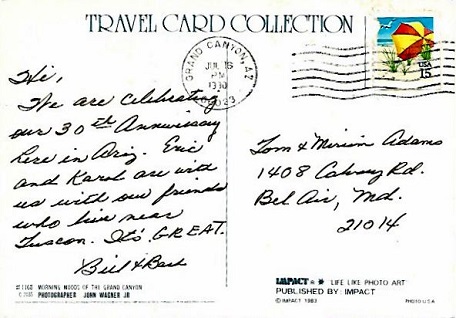 TRAVEL CARD COLLECTION
GRAND CANYON, AZ
JUL 16
PM
1990
86023
USA
15
Hi,
We are celebrating
our 30th Anniversary
here in Ariz. Eric
and Karol are with
us with our friends
who live near
Tuscon. It's GREAT.
Bill & Barb
Tom & Miriam Adams
1408 Calvary Rd.
Bel Air, Md.
21014
MORNING MOODS OF THE GRAND CANYON
PHOTOGRAPHER JOHN WAGNER JR
IMPACT LIFE LIKE PHOTO ART
PUBLISHED BY: IMPACT
© IMPACT 1983
PHOTO USA